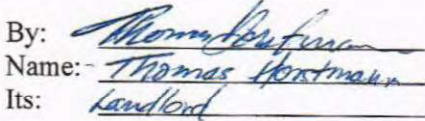 By: Thomas Horstmann
Name: Thomas Horstmann
Its: Landlord